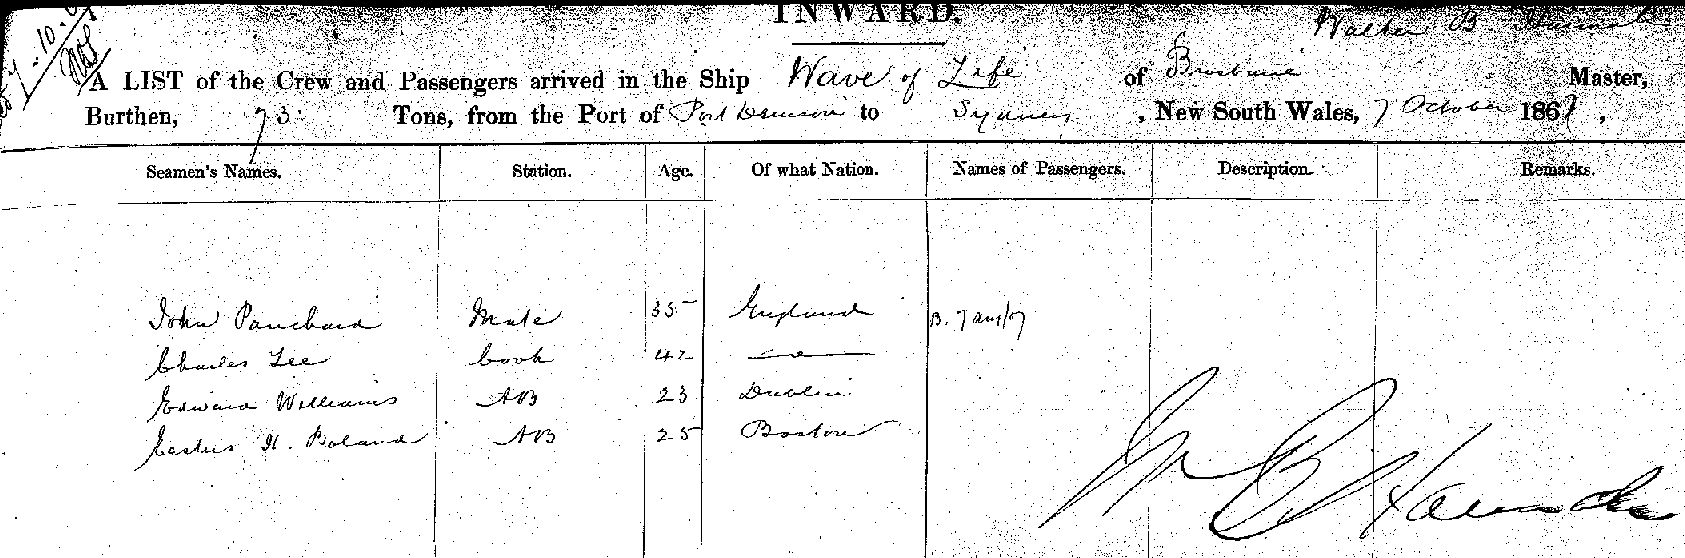 INWARD.
Walter B.
A LIST of the Crew and Passengers arrived in the Ship Wave of Life of Brisbane Master,
Burthen, 73 Tons, from the Port of Port Denison to Sydney, New South Wales, 7 October 1867,
Seamen's Names. Station. Age. Of what Nation. Names of Passengers. Description. Remarks.
John Panchard Mate 35 England
Charles Lee Cook 42 —"—
Edward Williams AB 23 Dublin
H. Boland AB 25 Boston